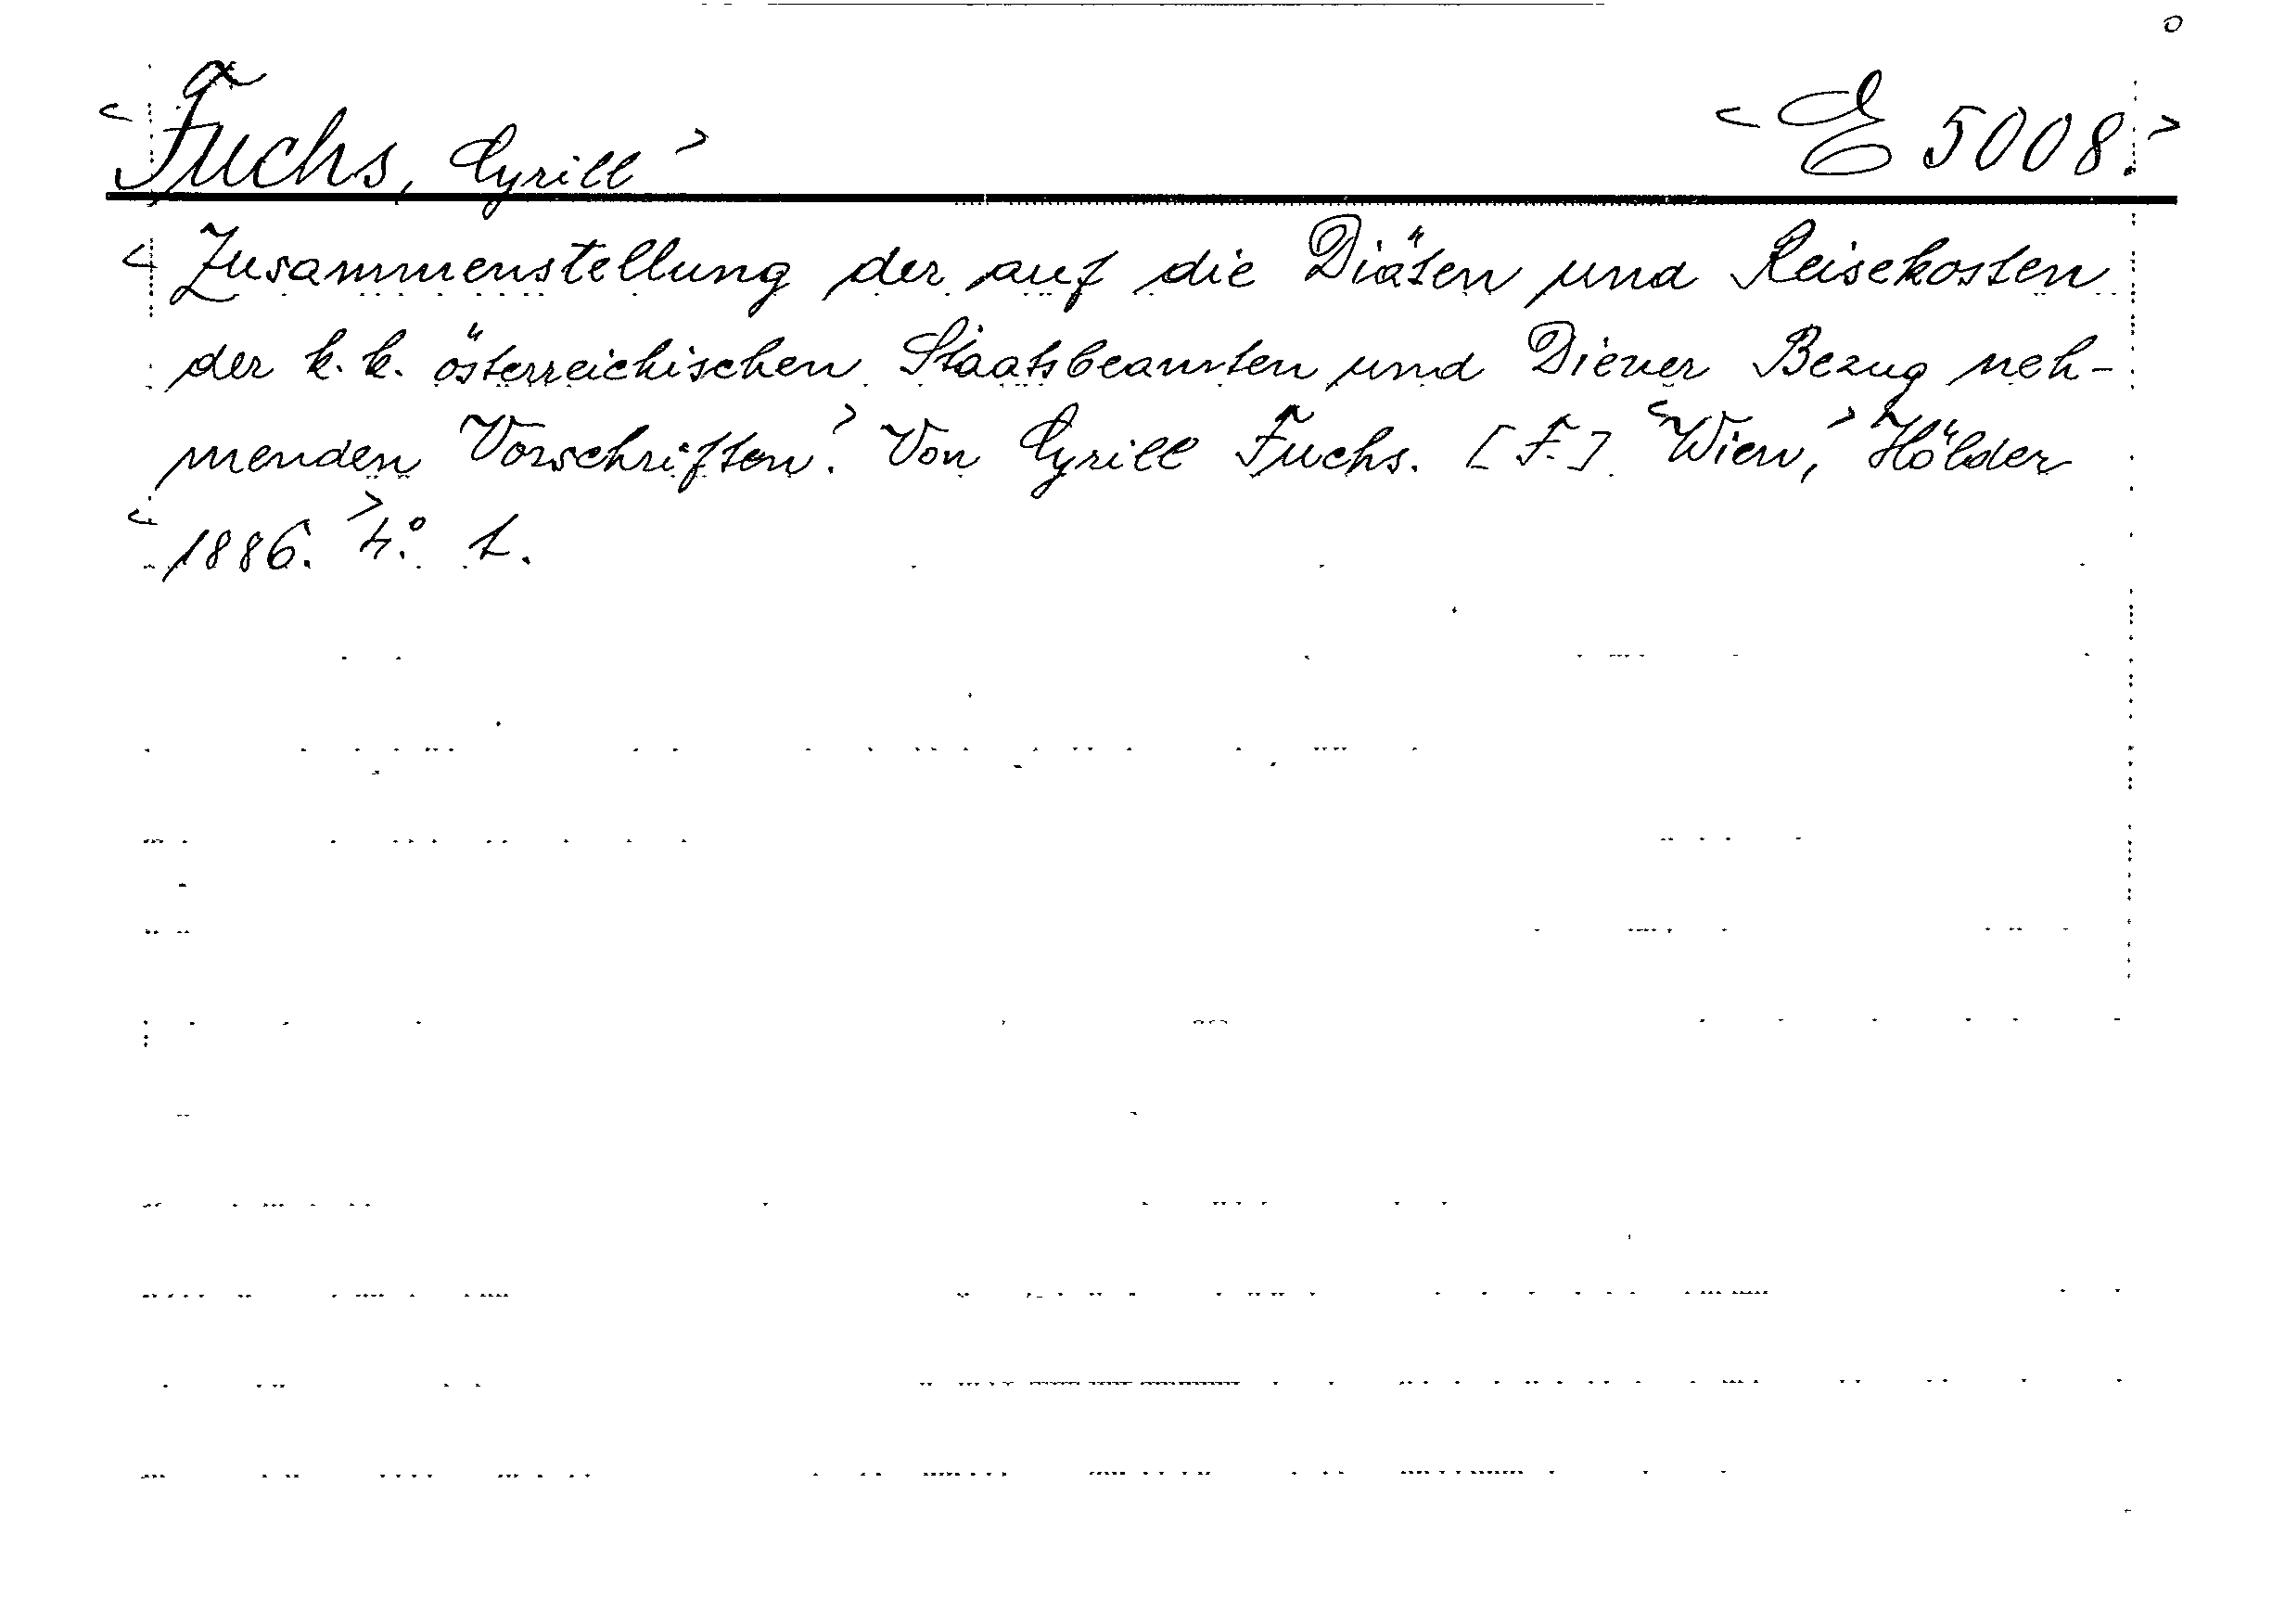 <Fuchs, Cyrill> <E 5008.>
<Zusammenstellung der auf die Diäten und Reisekosten
der k. k. österreichischen Staatsbeamten und Diener Bezug neh-
menden Vorschriften.> Von Cyrill Fuchs. [F.] <Wien,> Hölder
<1886.> 4.° 1.